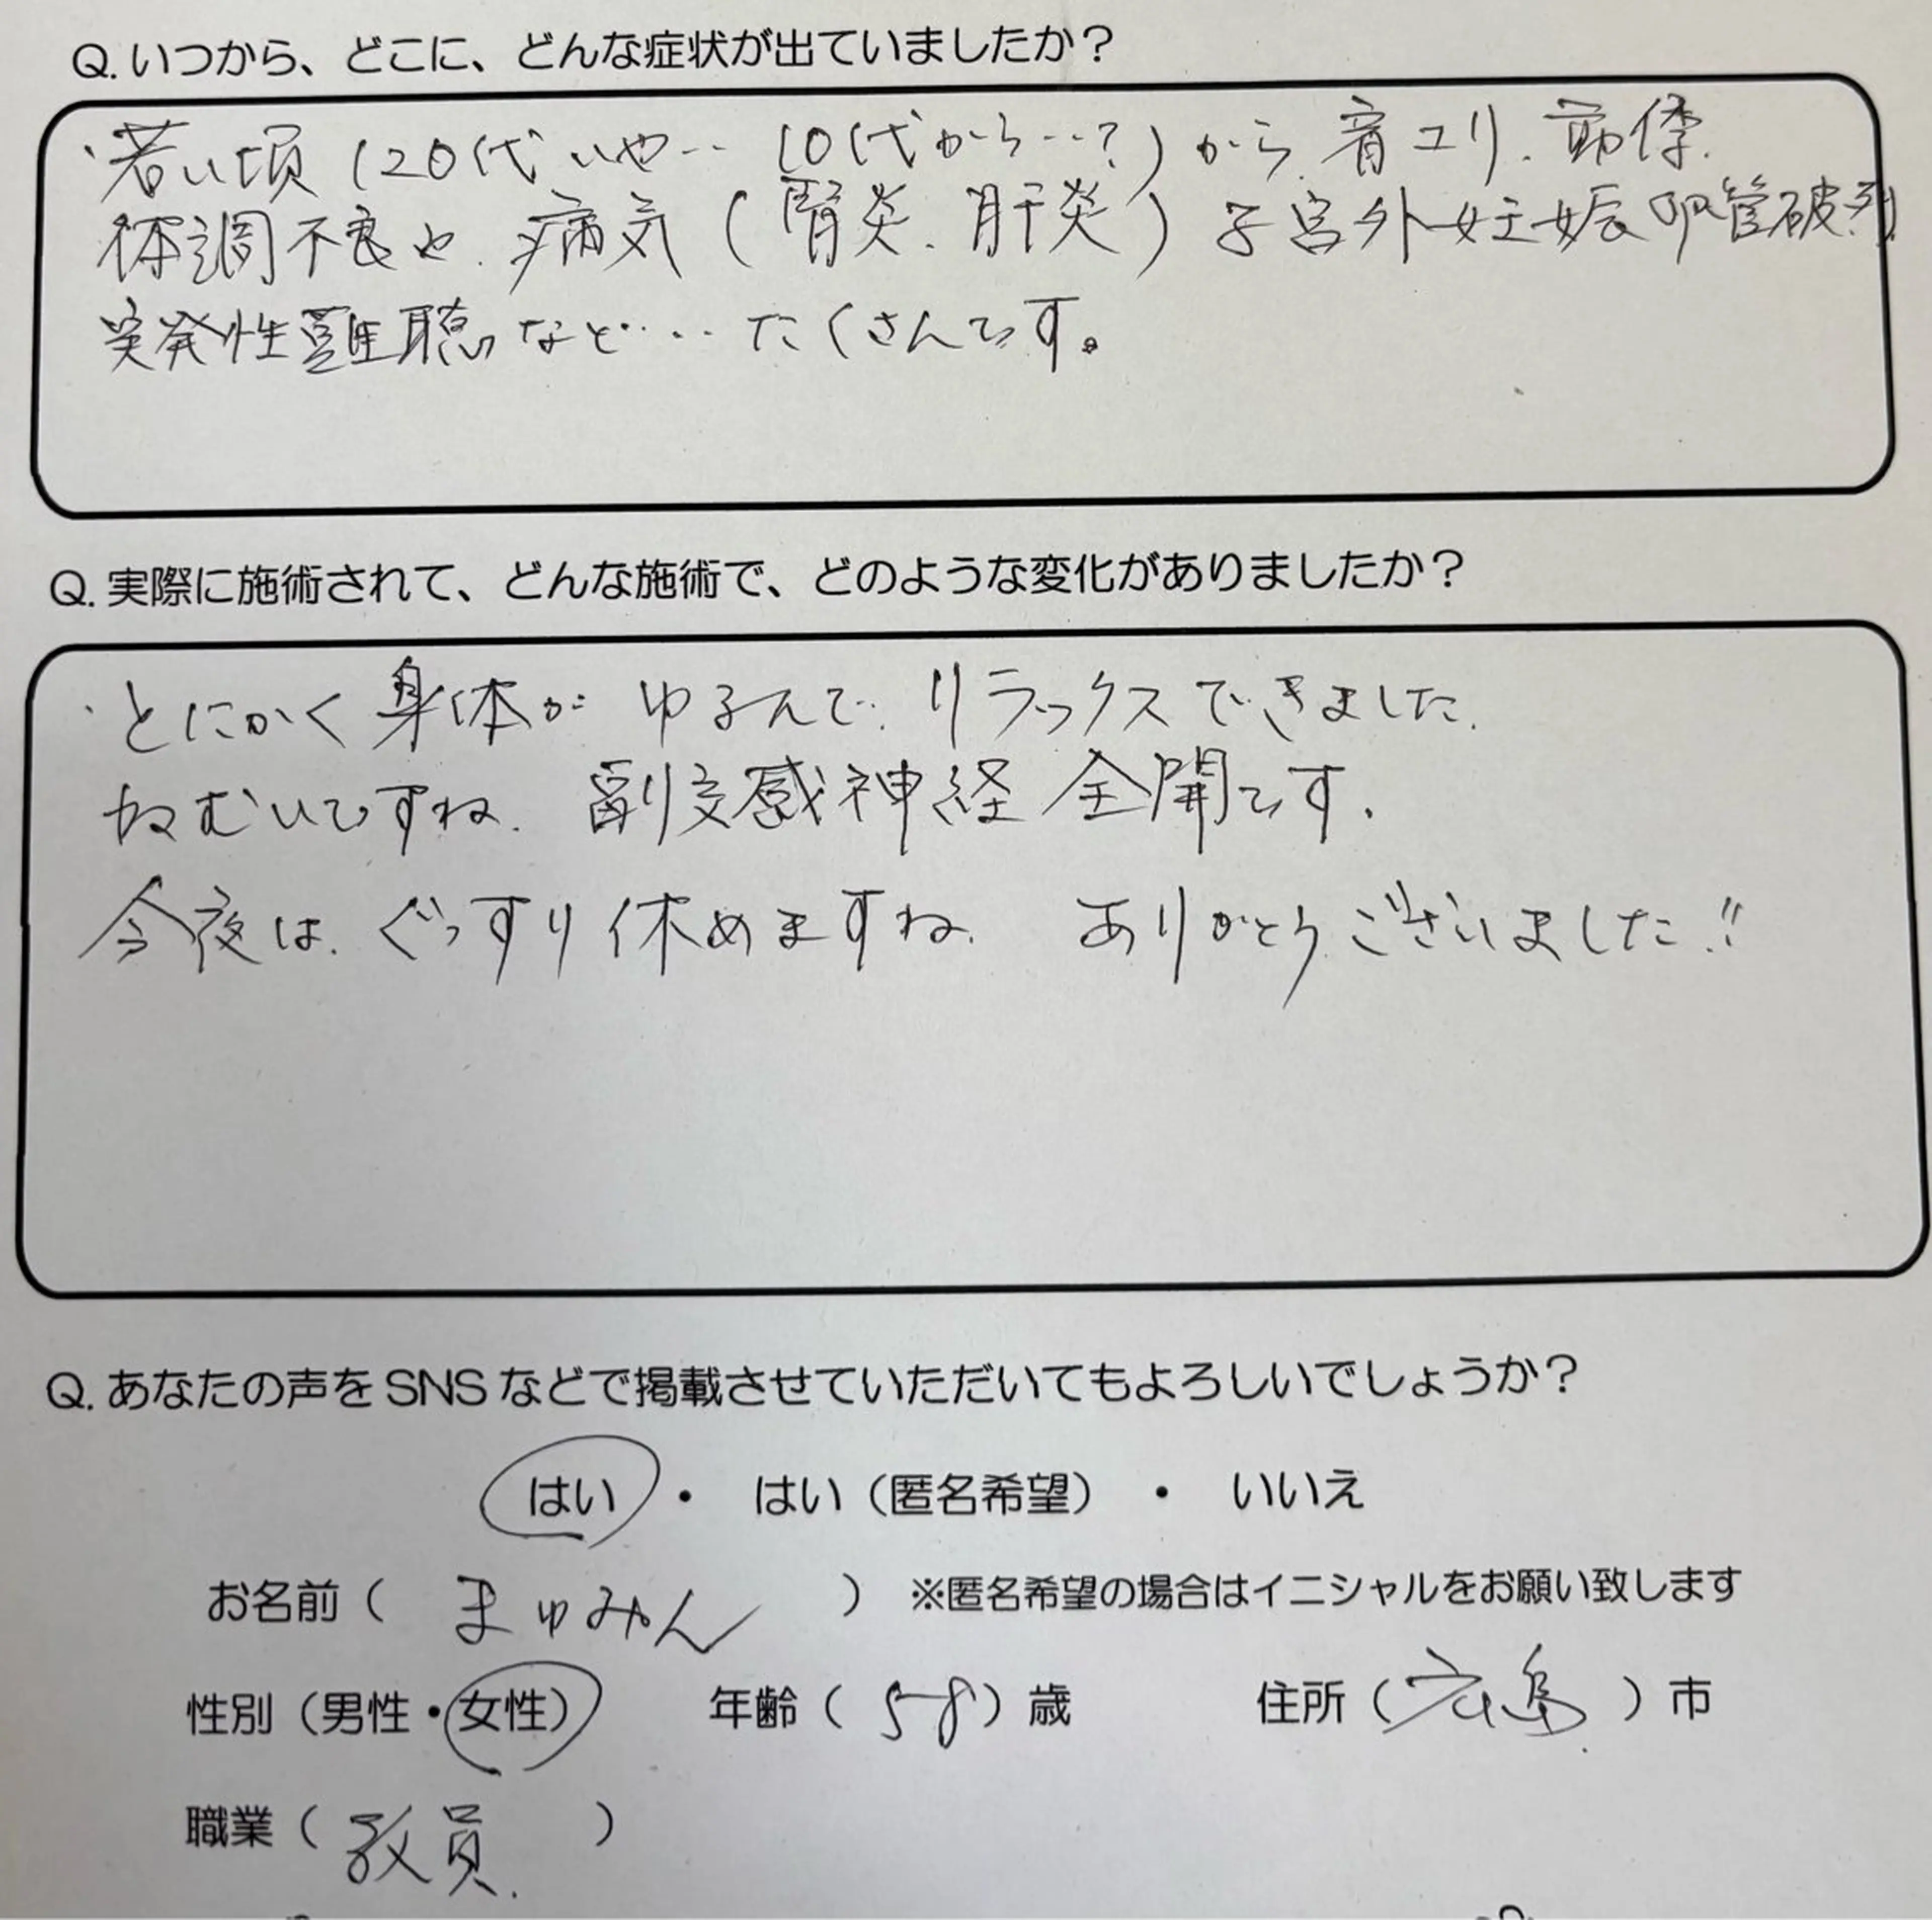 Q. いつから、どこに、どんな症状が出ていましたか？
・若い頃（20代いや‥ 10代から‥?）から 肩コリ、
体調不良や、病気（腎炎、肝炎）子宮外妊娠 卵管破裂
突発性難聴など‥‥たくさんです。
Q. 実際に施術されて、どんな施術で、どのような変化がありましたか？
・とにかく身体が ゆるんで、リラックスできました。
ねむいですね。 副交感神経 全開です。
今夜は、ぐっすり休めますね。 ありがとうございました!!
Q. あなたの声を SNS などで掲載させていただいてもよろしいでしょうか？
はい ・ はい（匿名希望） ・ いいえ
お名前（ まゆみん ） ※匿名希望の場合はイニシャルをお願い致します
性別（男性・女性） 年齢（58）歳 住所（広島）市
職業（教員）